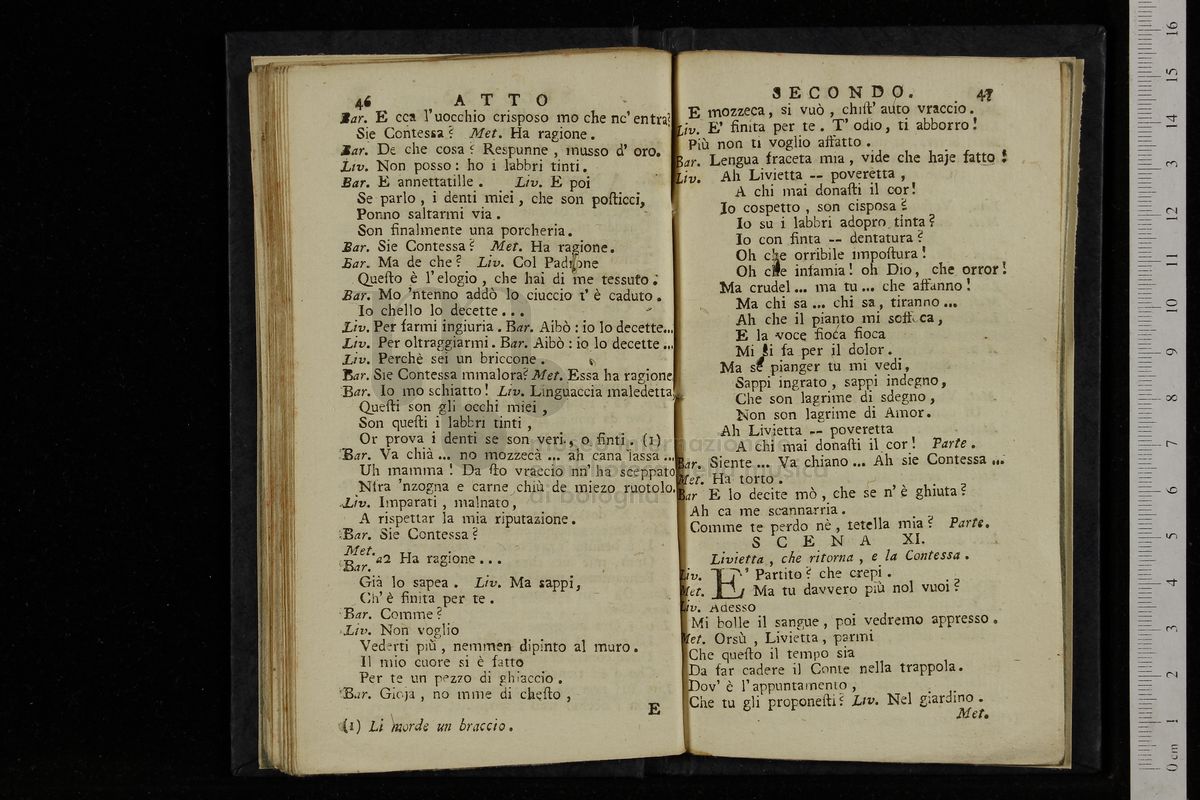 46 ATTO
Bar. E cca l'uocchio crisposo mo che nc'entra?
Sie Contessa? Met. Ha ragione.
Bar. De che cosa? Respunne, musso d'oro.
Liv. Non posso: ho i labbri tinti.
Bar. E annettatille. Liv. E poi
Se parlo, i denti miei, che son posticci,
Ponno saltarmi via.
Son finalmente una porcheria.
Bar. Sie Contessa? Met. Ha ragione.
Bar. Ma de che? Liv. Col Padrone
Questo è l'elogio, che hai di me tessuto.
Bar. Mo 'ntenno addò lo ciuccio t'è caduto.
Io chello lo decette...
Liv. Per farmi ingiuria. Bar. Aibò: io lo decette...
Liv. Per oltraggiarmi. Bar. Aibò: io lo decette...
Liv. Perchè sei un briccone.
Bar. Sie Contessa mmalora? Met. Essa ha ragione
Bar. Io mo schiatto! Liv. Linguaccia maledetta,
Questi son gli occhi miei,
Son questi i labbri tinti,
Or prova i denti se son veri, o finti. (1)
Bar. Va chià... no mozzecà... ah cana lassa...
Uh mamma! Da sto vraccio nn'ha sceppato
Nfra 'nzogna e carne chiù de miezo ruotolo.
Liv. Imparati, malnato,
A rispettar la mia riputazione.
Bar. Sie Contessa?
Met.
Bar. a2 Ha ragione...
Già lo sapea. Liv. Ma sappi,
Ch'è finita per te.
Bar. Comme?
Liv. Non voglio
Vederti più, nemmen dipinto al muro.
Il mio cuore si è fatto
Per te un pezzo di ghiaccio.
Bar. Gioja, no mme di chesto,
E
(1) Li morde un braccio.
SECONDO. 47
E mozzeca, si vuò, chist'auto vraccio.
Liv. E' finita per te. T'odio, ti abborro!
Più non ti voglio affatto.
Bar. Lengua fraceta mia, vide che haje fatto!
Liv. Ah Livietta -- poveretta,
A chi mai donasti il cor!
Io cospetto, son cisposa?
Io su i labbri adopro tinta?
Io con finta -- dentatura?
Oh che orribile impostura!
Oh che infamia! oh Dio, che orror!
Ma crudel... ma tu... che affanno!
Ma chi sa... chi sa, tiranno...
Ah che il pianto mi soffoca,
E la voce fioca fioca
Mi si fa per il dolor.
Ma se pianger tu mi vedi,
Sappi ingrato, sappi indegno,
Che son lagrime di sdegno,
Non son lagrime di Amor.
Ah Livietta -- poveretta
A chi mai donasti il cor! Parte.
Bar. Siente... Va chiano... Ah sie Contessa...
Met. Ha torto.
Bar E lo decite mò, che se n'è ghiuta?
Ah ca me scannarria.
Comme te perdo nè, tetella mia? Parte.
SCENA XI.
Livietta, che ritorna, e la Contessa.
Liv. E' Partito? che crepi.
Met. Ma tu davvero più nol vuoi?
Liv. Adesso
Mi bolle il sangue, poi vedremo appresso.
Met. Orsù, Livietta, parmi
Che questo il tempo sia
Da far cadere il Conte nella trappola.
Dov'è l'appuntamento,
Che tu gli proponesti? Liv. Nel giardino.
Met.